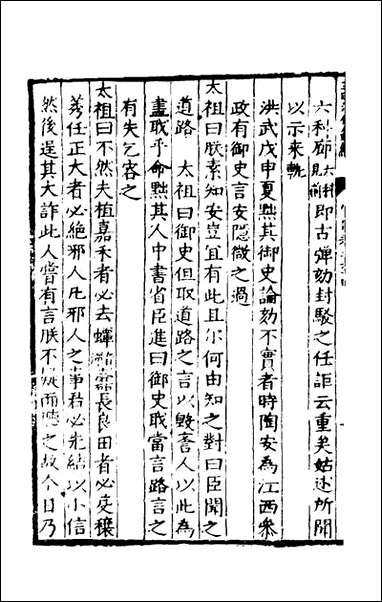 六科鄉六科見前即古彈劾封駁之任詎云重矣姑述所聞
以示来軌
洪武戊申夏㸃其御史論劾不實者時陶安為江西叅
政有御史言安隱微之過
太祖曰朕素知安豈宜有此且尔何由知之對曰臣聞之
道路 太祖曰御史但取道路之言以毀訾人以此為
盡取乎命㸃其人中書省臣進曰御史取當言路言之
有失乞容之
太祖曰不然夫植嘉禾者必去長良田者必
善任正大者必絶邪人凡邪人之事君必先結以小信
然後逞其大詐此人嘗有言朕不疑而聽之故今日乃